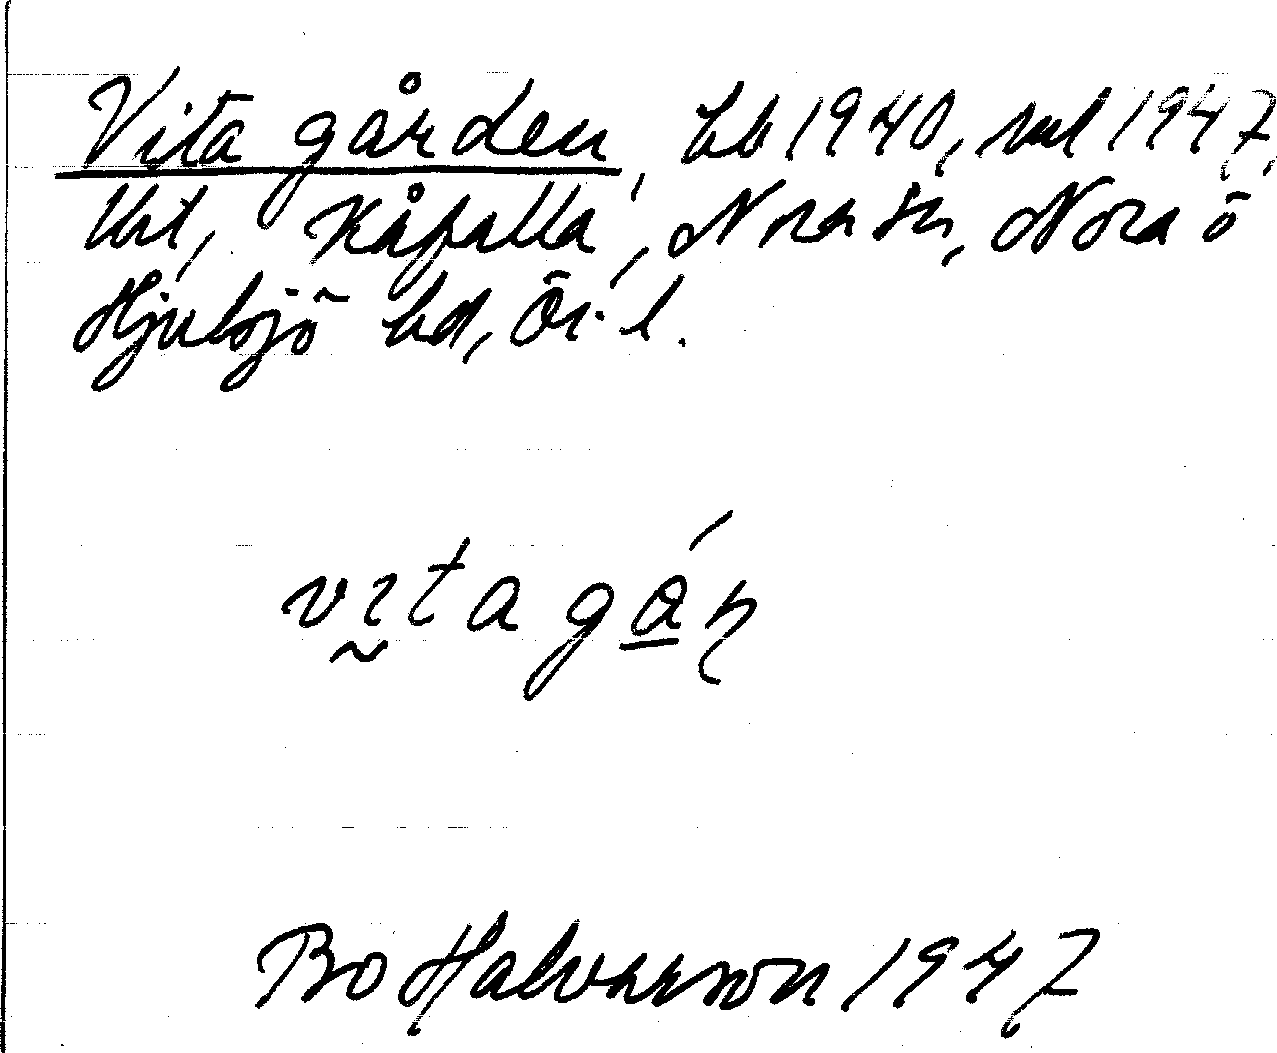 Vita gården, hb 1940, rul 1947,
Kåfalla, Nora sn, Nora o
Hjulsjö bd, Ör. l.
vita gån
Bo Halvarson 1947